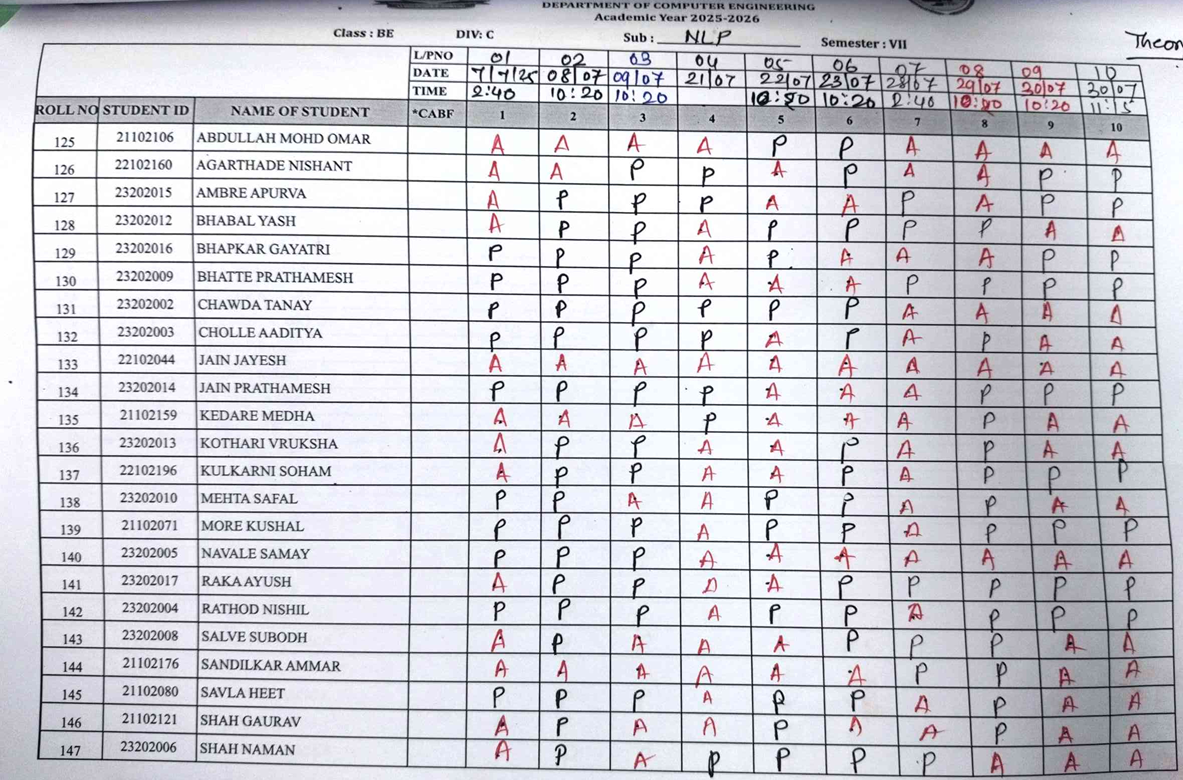 DEPARTMENT OF COMPUTER ENGINEERING
Academic Year 2025-2026
Class : BE DIV: C Sub : NLP Semester : VII Theor
L/PNO 01 02 03 04 05 06 07 08 09 10
DATE 7/7/25 08/07 09/07 21/07 22/07 23/07 28/07 29/07 30/07 30/07
TIME 2:40 10:20 10:20 10:20 10:20 2:40 10:20 11:15
ROLL NO STUDENT ID NAME OF STUDENT *CABF 1 2 3 4 5 6 7 8 9 10
125 21102106 ABDULLAH MOHD OMAR A A A A P P A A A A
126 22102160 AGARTHADE NISHANT A A P P A P A A P P
127 23202015 AMBRE APURVA A P P P A A P A P P
128 23202012 BHABAL YASH A P P A P P P P A A
129 23202016 BHAPKAR GAYATRI P P P A P A A A P P
130 23202009 BHATTE PRATHAMESH P P P A A A P P P P
131 23202002 CHAWDA TANAY P P P P P P A A A A
132 23202003 CHOLLE AADITYA P P P P A P A P A A
133 22102044 JAIN JAYESH A A A A A A A A A A
134 23202014 JAIN PRATHAMESH P P P P A A A P P P
135 21102159 KEDARE MEDHA A A A P A A A P A A
136 23202013 KOTHARI VRUKSHA A P P A A P A P A A
137 22102196 KULKARNI SOHAM A P P A A P A P P P
138 23202010 MEHTA SAFAL P P A A P P A P A A
139 21102071 MORE KUSHAL P P P A P P A P P P
140 23202005 NAVALE SAMAY P P P A A A A A A A
141 23202017 RAKA AYUSH A P P A A P P P P P
142 23202004 RATHOD NISHIL P P P A P P A P P P
143 23202008 SALVE SUBODH A P A A A P P P A A
144 21102176 SANDILKAR AMMAR A A A A A A P P A A
145 21102080 SAVLA HEET P P P A P P A P A A
146 21102121 SHAH GAURAV A P A A P A A P A A
147 23202006 SHAH NAMAN A P A P P P P A A A